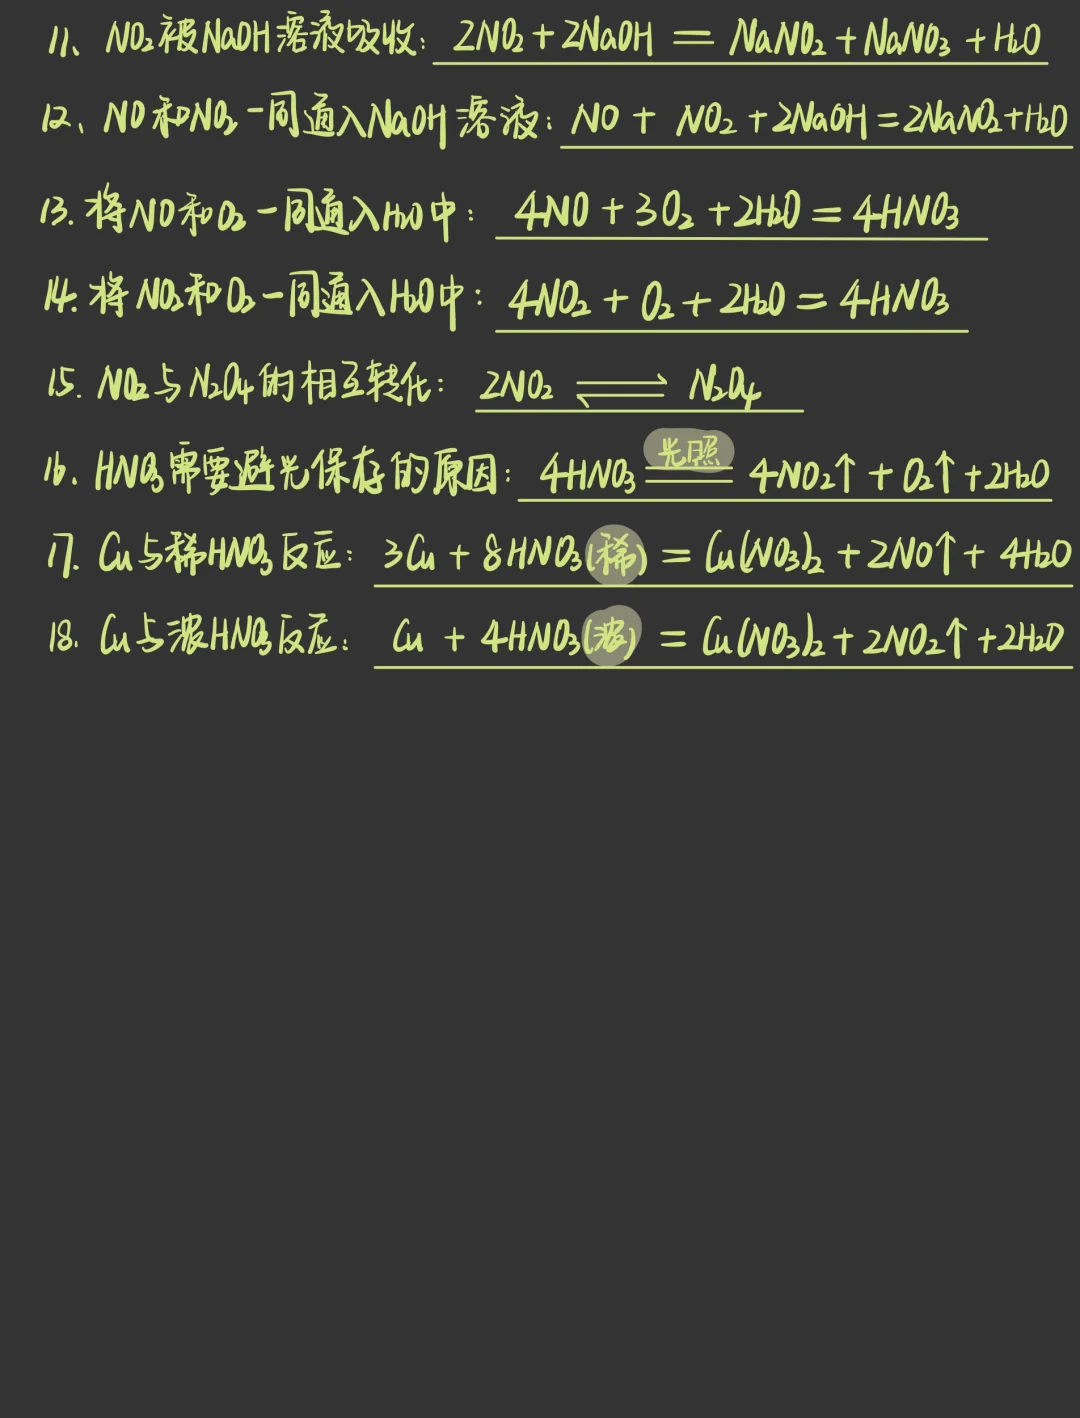 11、NO₂被NaOH溶液吸收：2NO₂+2NaOH = NaNO₂+NaNO₃+H₂O
12、NO和NO₂一同通入NaOH溶液：NO + NO₂+2NaOH=2NaNO₂+H₂O
13.将NO和O₂一同通入H₂O中：4NO+3O₂+2H₂O=4HNO₃
14.将NO₂和O₂一同通入H₂O中：4NO₂+O₂+2H₂O=4HNO₃
15.NO₂与N₂O₄的相互转化：2NO₂ ⇌ N₂O₄
16、HNO₃需要避光保存的原因：4HNO₃ =光照= 4NO₂↑+O₂↑+2H₂O
17.Cu与稀HNO₃反应：3Cu+8HNO₃(稀)=Cu(NO₃)₂+2NO↑+4H₂O
18.Cu与浓HNO₃反应：Cu+4HNO₃(浓)=Cu(NO₃)₂+2NO₂↑+2H₂O